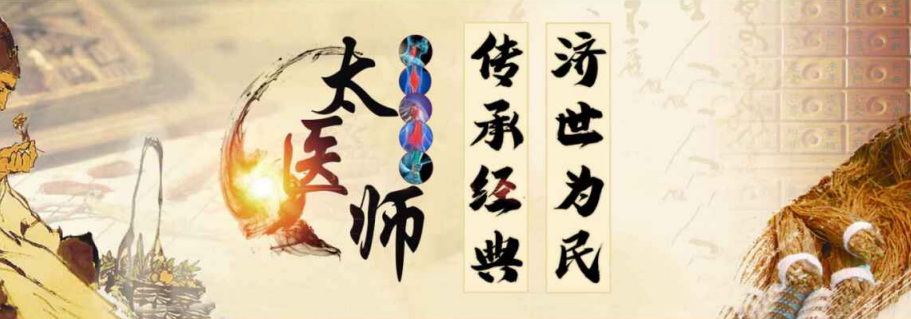 太医师
济世为民
传承经典